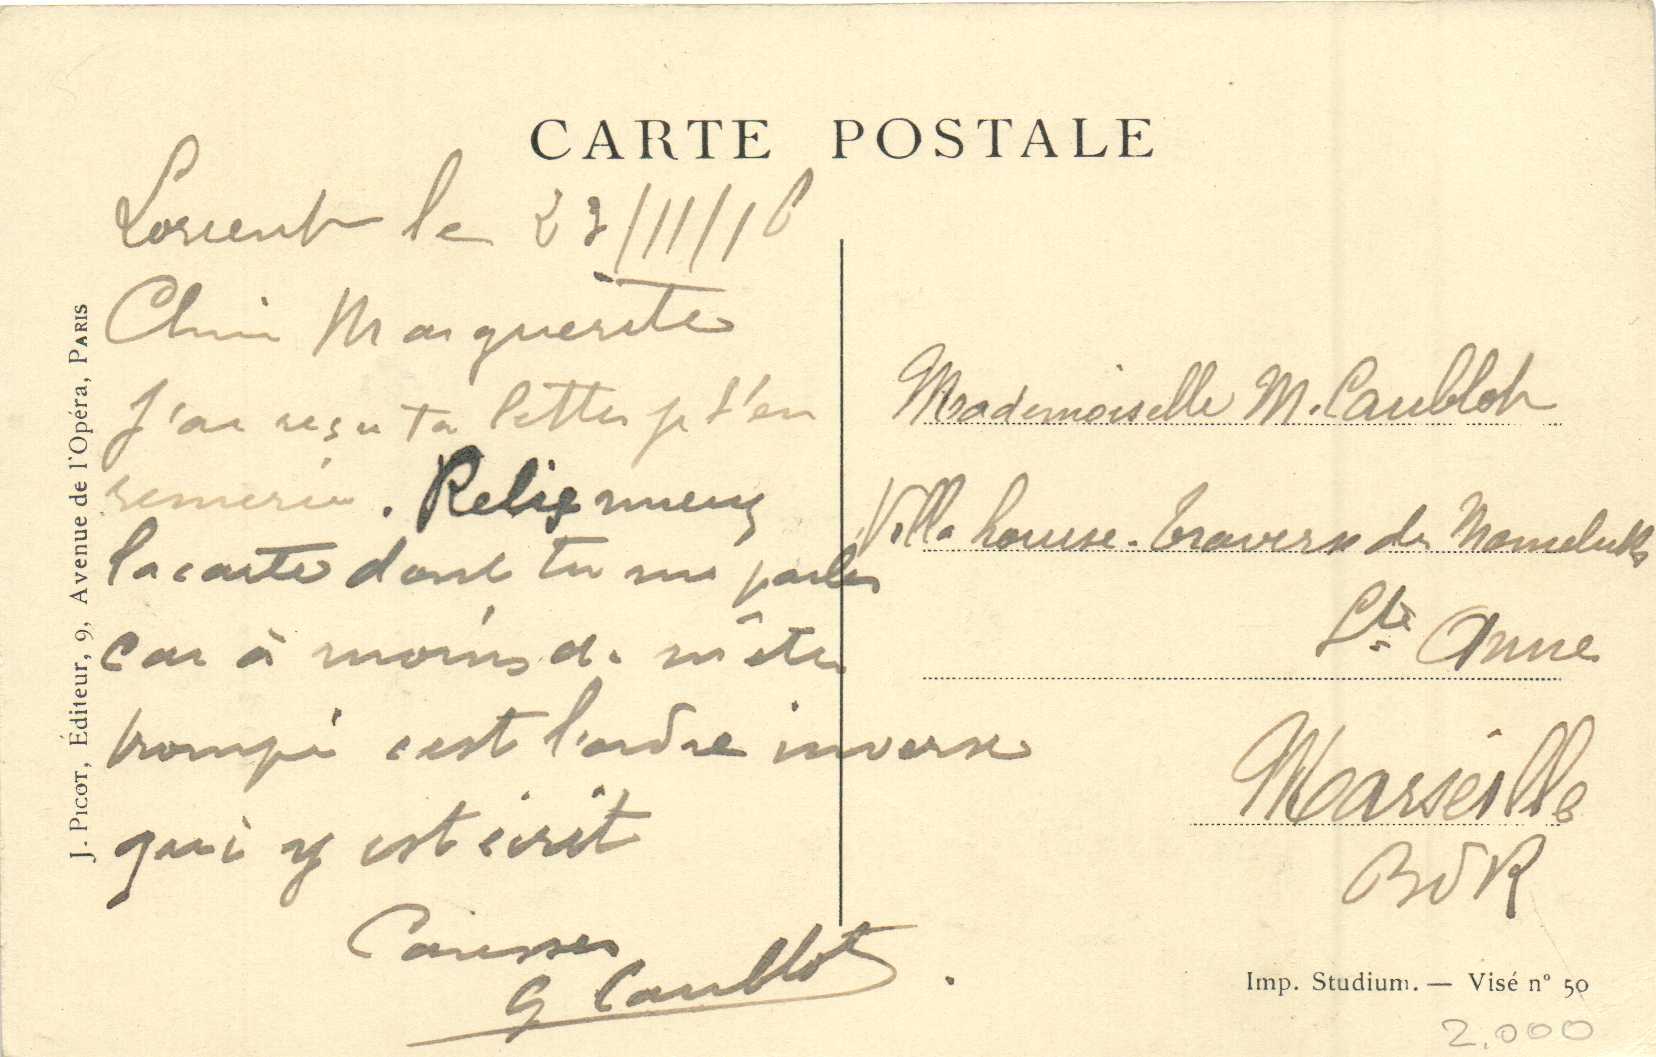 CARTE POSTALE
Lorient le 27/11/16
Chère Marguerite
J'ai reçu ta lettre je t'en
remercie. Relis mieux
la carte dont tu me parles
car à moins de m'être
trompé c'est l'ordre inverse
qui y est écrit
Caresses
G Caublot
J. PICOT, Éditeur, 9, Avenue de l'Opéra, PARIS
Mademoiselle M. Caublot
Villa Louise. Traverse des Mameluks
Ste Anne
Marseille
BdR
Imp. Studium. — Visé n° 50
2.000